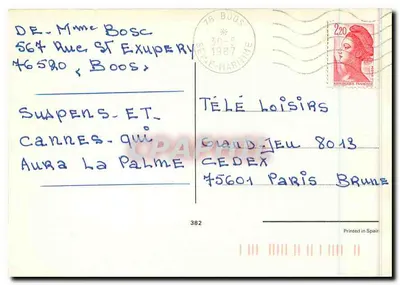 DE - Mme Bosc
567 Rue St Exupery
76520 (Boos)
Suspens - Et -
Cannes - qui
Aura La Palme
76 BOOS
1987
SEINE-MARITIME
2,20
TÉLÉ LOISIRS
Grand-Jeu 8013
CEDEX
75601 Paris Brune
382
Printed in Spain